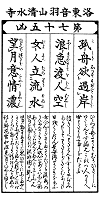 洛東音羽山清水寺
第七十五凶
孤舟欲過岸
浪急渡人空
女人立流水
望月意情濃